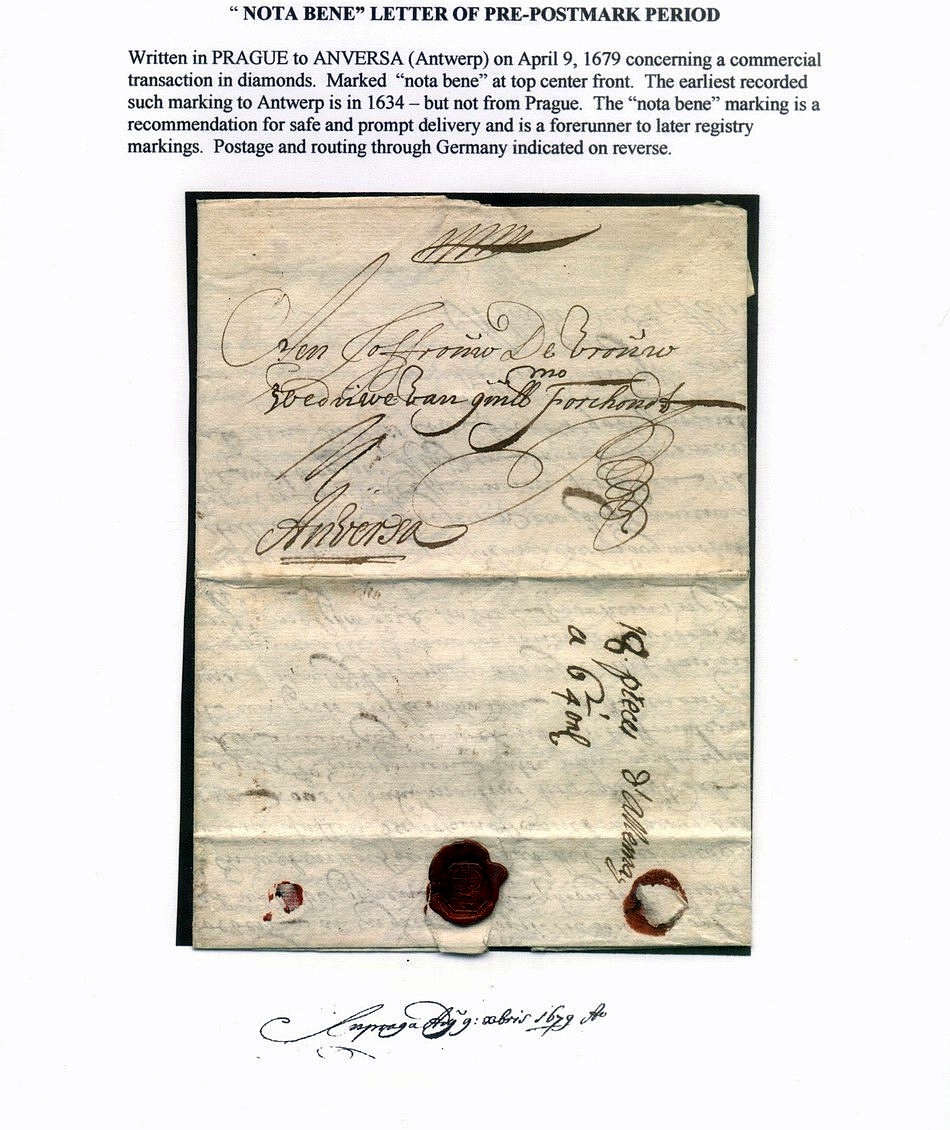 “ NOTA BENE” LETTER OF PRE-POSTMARK PERIOD
Written in PRAGUE to ANVERSA (Antwerp) on April 9, 1679 concerning a commercial
transaction in diamonds. Marked “nota bene” at top center front. The earliest recorded
such marking to Antwerp is in 1634 – but not from Prague. The “nota bene” marking is a
recommendation for safe and prompt delivery and is a forerunner to later registry
markings. Postage and routing through Germany indicated on reverse.
Aen Joffrouw De Vrouw
Weduwe van Guill mo Forchondt
Anversa
18 pieces d'allemag
a 6 1/4
Praga 9: xbris 1679